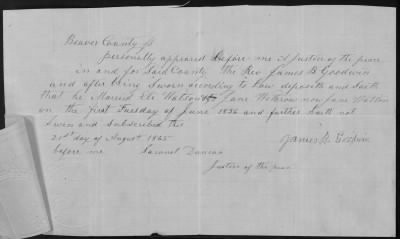 Beaver County ss
Personally appeared before me a Justice of the peace
in and for Said County The Rev James B Goodwin
and after being Sworn according to Law deposeth and Saith
that he Married Eli Watson to Jane Withrow now Jane Watson
on the first Tuesday of June 1836 and further Saith not
Sworn and Subscribed this
21st day of August 1865 James B. Goodwin
before me Duncan
Justice of the peace